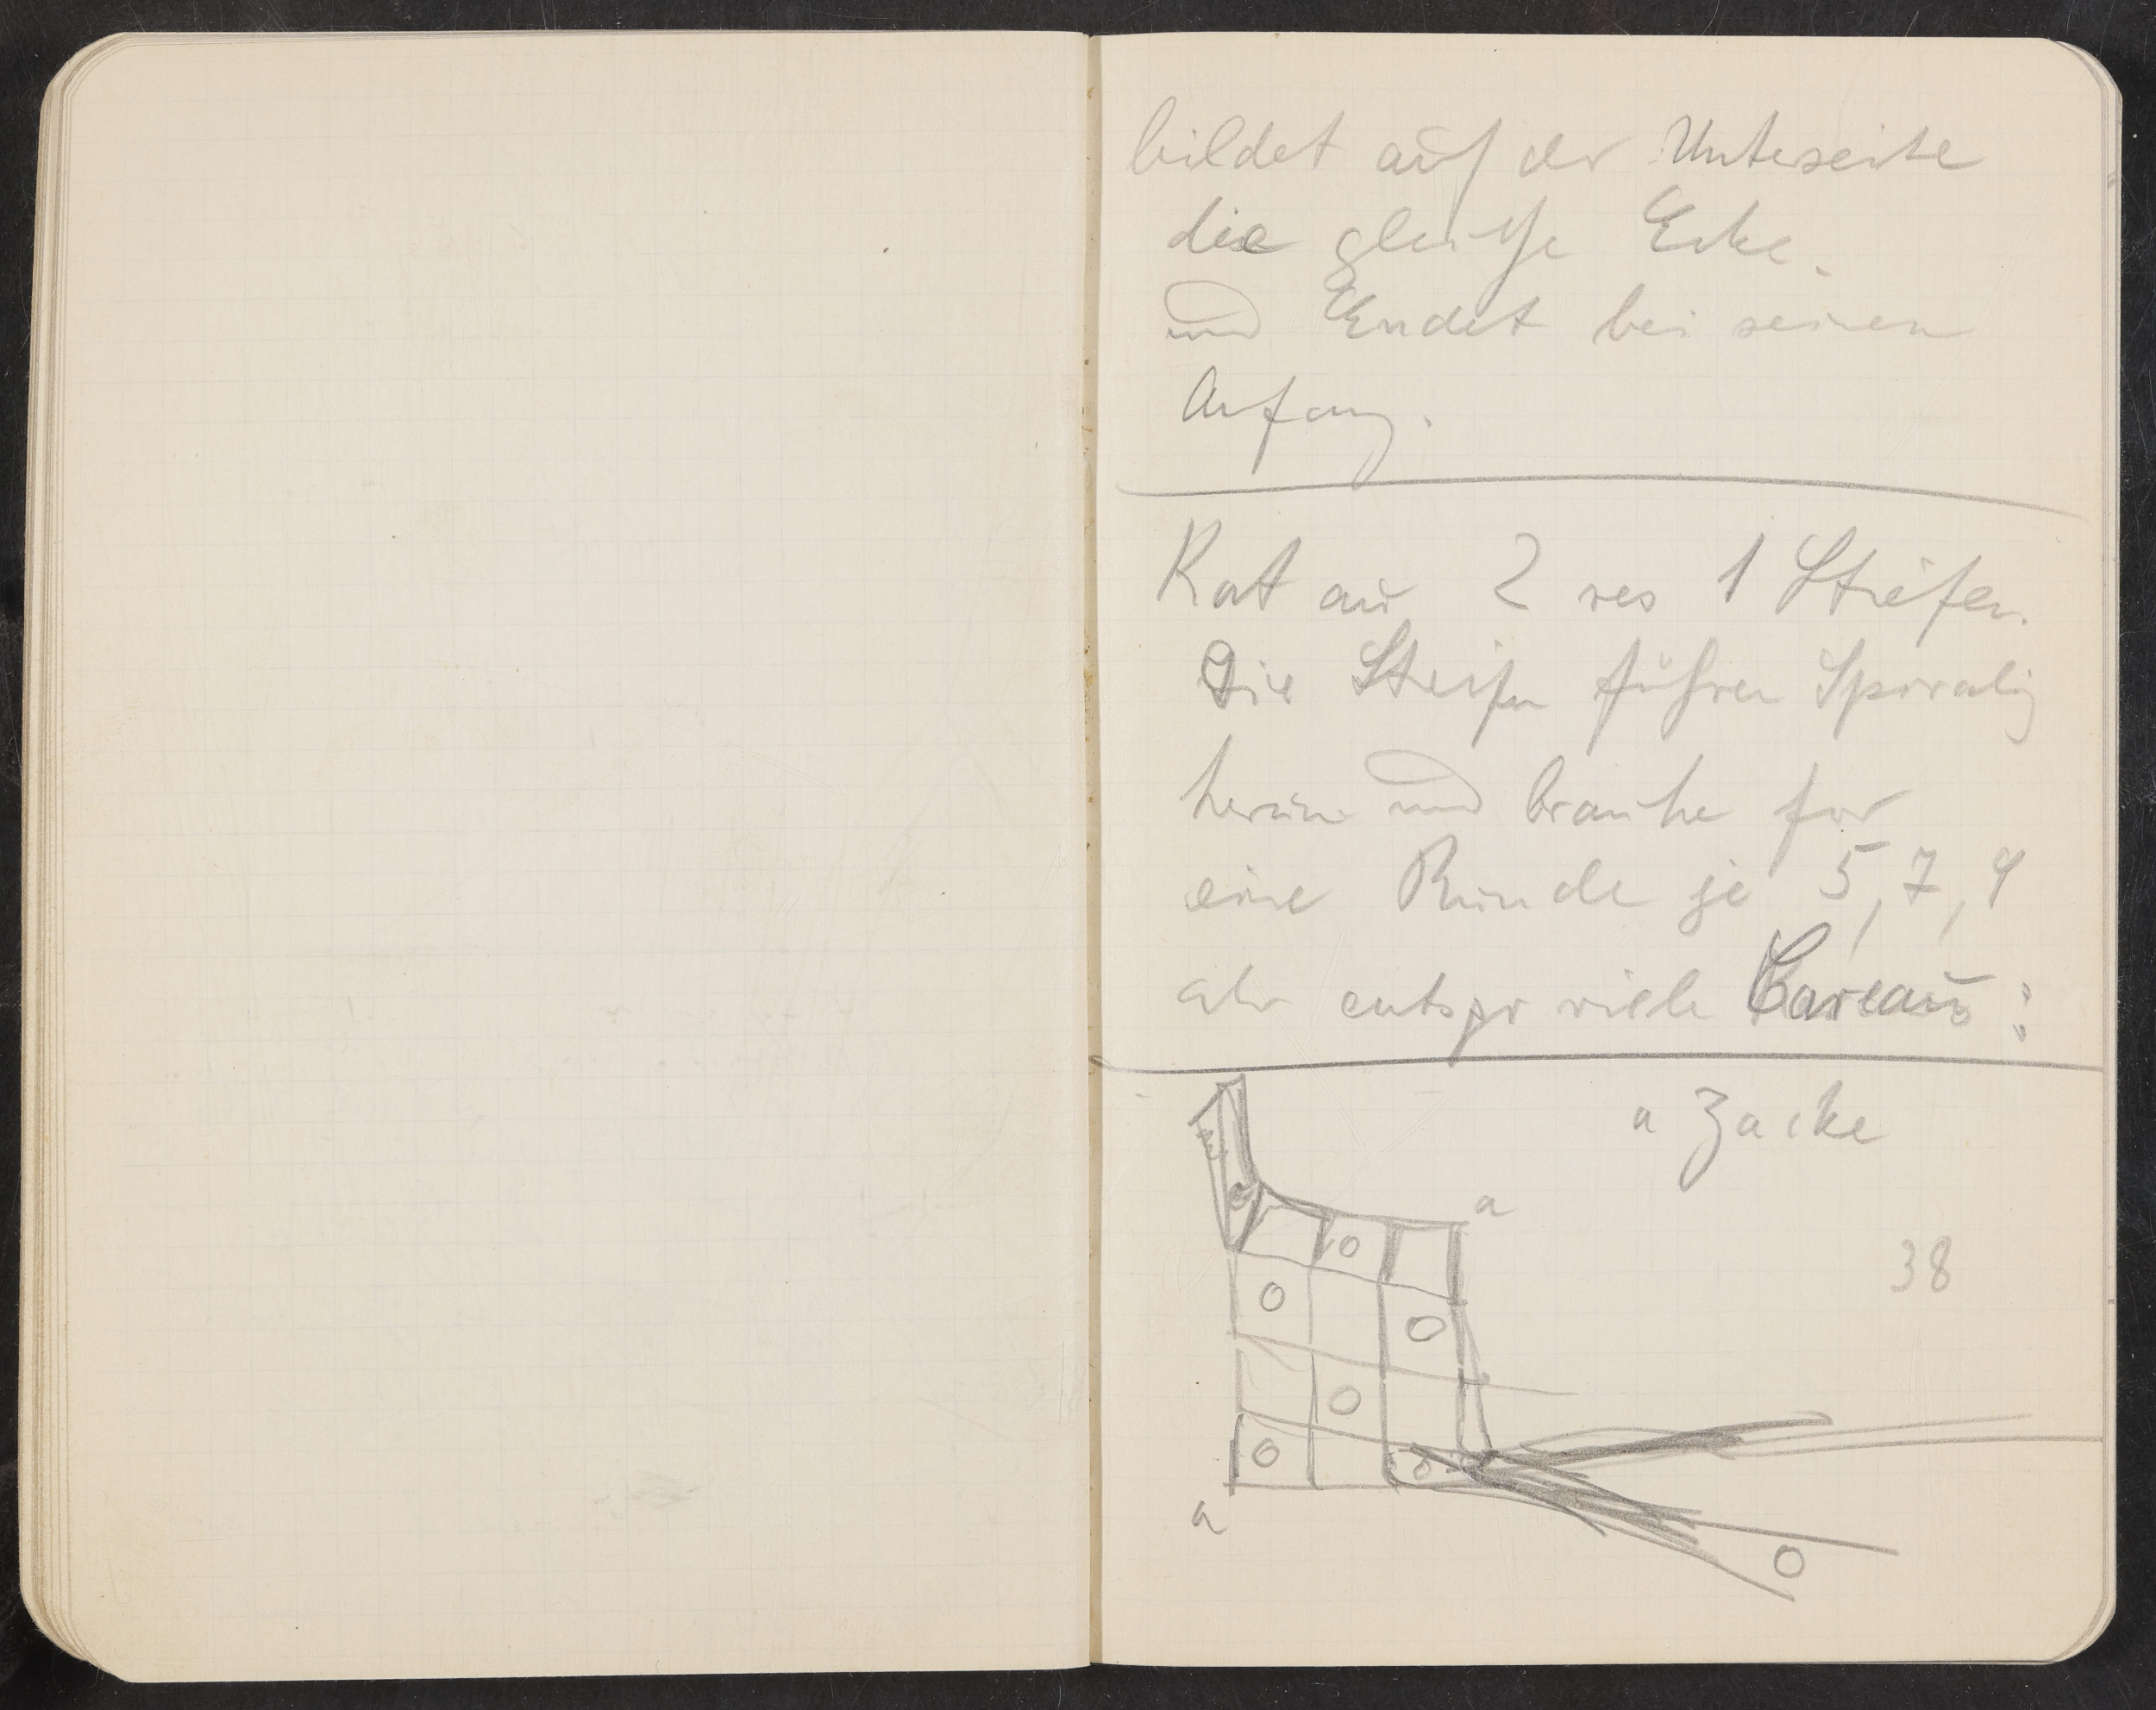 bildet auf der Unterseite
die gleiche Ecke.
und Endet bei seinen
Anfang.
Rat aus 2 res 1 Streifen.
Die Streifen führen Spiralig
herum und brauche for
eine Runde je 5, 7, 9
entspr viele Careaus :
a Zacke
a
38
a